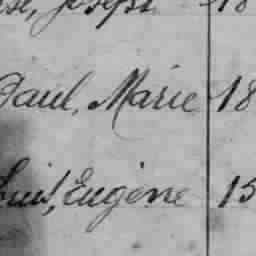 Joseph 18
Paul, Marie 18
Louis, Eugène 15